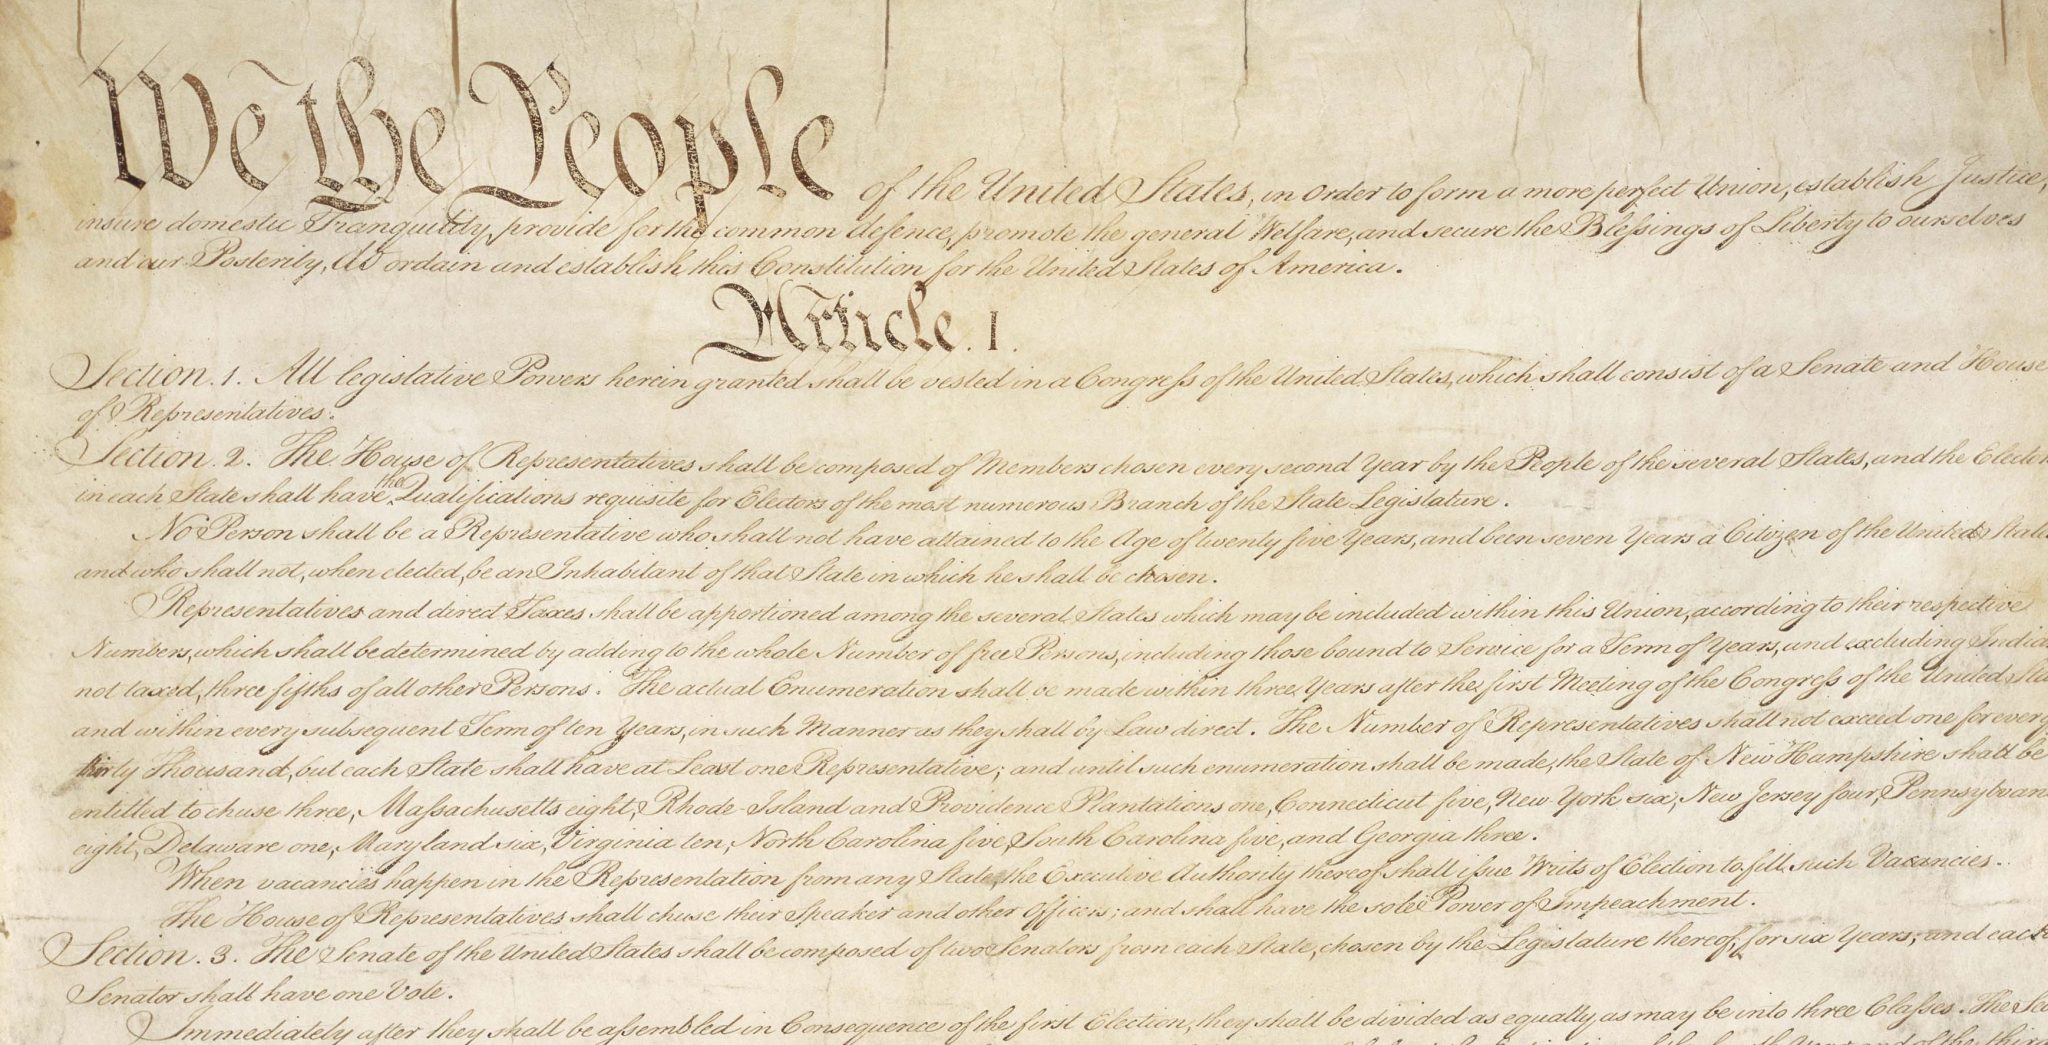 We the People of the United States, in Order to form a more perfect Union, establish Justice,
insure domestic Tranquility, provide for the common defence, promote the general Welfare, and secure the Blessings of Liberty to ourselves
and our Posterity, do ordain and establish this Constitution for the United States of America.
Article. I.
Section. 1. All legislative Powers herein granted shall be vested in a Congress of the United States, which shall consist of a Senate and House
of Representatives.
Section. 2. The House of Representatives shall be composed of Members chosen every second Year by the People of the several States, and the Elect
in each State shall have the Qualifications requisite for Electors of the most numerous Branch of the State Legislature.
No Person shall be a Representative who shall not have attained to the Age of twenty five Years, and been seven Years a Citizen of the United State
and who shall not, when elected, be an Inhabitant of that State in which he shall be chosen.
Representatives and direct Taxes shall be apportioned among the several States which may be included within this Union, according to their respective
Numbers, which shall be determined by adding to the whole Number of free Persons, including those bound to Service for a Term of Years, and excluding India
not taxed, three fifths of all other Persons. The actual Enumeration shall be made within three Years after the first Meeting of the Congress of the United Sta
and within every subsequent Term of ten Years, in such Manner as they shall by Law direct. The Number of Representatives shall not exceed one for every
thirty Thousand, but each State shall have at Least one Representative; and until such enumeration shall be made, the State of New Hampshire shall be
entitled to chuse three, Massachusetts eight, Rhode-Island and Providence Plantations one, Connecticut five, New-York six, New Jersey four, Pennsylvan
eight, Delaware one, Maryland six, Virginia ten, North Carolina five, South Carolina five, and Georgia three.
When vacancies happen in the Representation from any State, the Executive Authority thereof shall issue Writs of Election to fill such Vacancies.
The House of Representatives shall chuse their Speaker and other Officers; and shall have the sole Power of Impeachment.
Section. 3. The Senate of the United States shall be composed of two Senators from each State, chosen by the Legislature thereof, for six Years; and each
Senator shall have one Vote.
Immediately after they shall be assembled in Consequence of the first Election, they shall be divided as equally as may be into three Classes. The Se